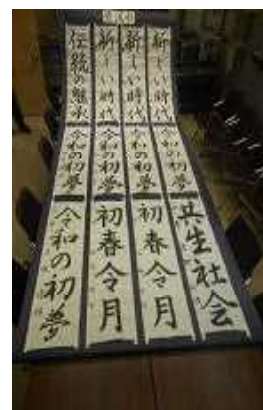 新しい時代
新しい時代
新しい時代
伝統の継承
令和の初夢
令和の初夢
令和の初夢
令和の初夢
共生社会
初春令月
初春令月
令和の初夢